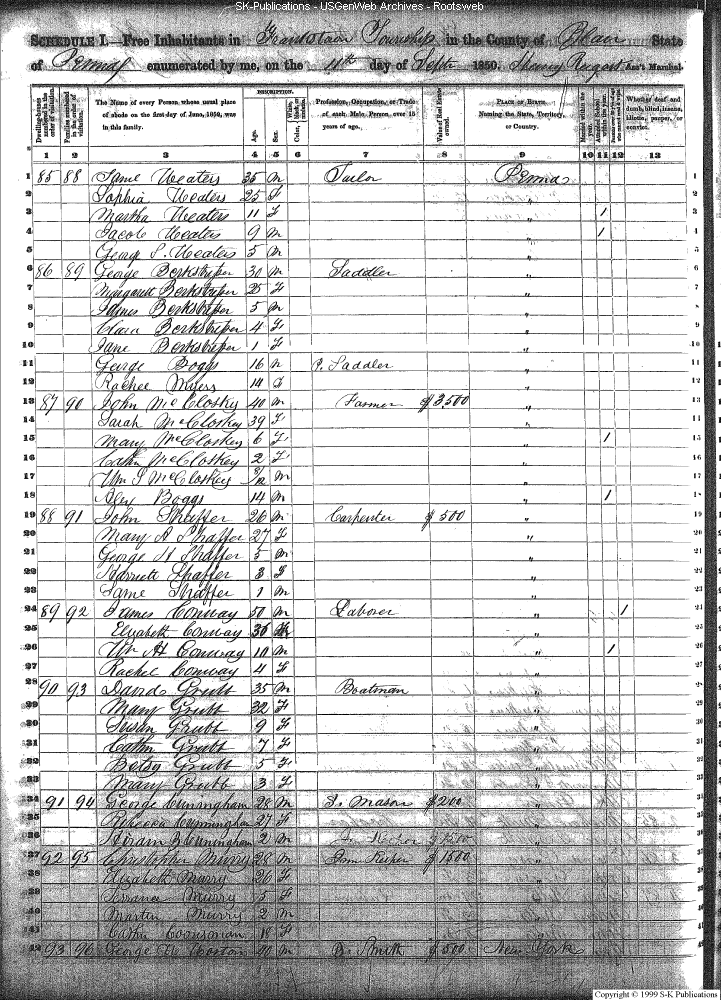 SK-Publications - USGenWeb Archives - Rootsweb
SCHEDULE I.—Free Inhabitants in Frankstown Township in the County of Blair State
of Penna enumerated by me, on the 11th day of Septr 1850. Ass't Marshal.
Dwelling-houses numbered in the order of visitation. Families numbered in the order of visitation. The Name of every Person whose usual place of abode on the first day of June, 1850, was in this family. DESCRIPTION. Age. Sex. White, black, or mulatto. Color, Profession, Occupation, or Trade of each Male Person over 15 years of age. Value of Real Estate owned. PLACE OF BIRTH. Naming the State, Territory, or Country. Married within the year. Attended School within the year. Whether deaf and dumb, blind, insane, idiotic, pauper, or convict.
1 2 3 4 5 6 7 8 9 10 11 12 13
1 85 88 Weaters 35 M Tailor Penna 1
2 Sophia Weaters 25 F " 2
3 Martha Weaters 11 F " 1 3
4 Jacob Weaters 9 M " 1 4
5 George S. Weaters 5 M " 5
6 86 89 George Berkstresser 30 M Saddler " 6
7 Margarett Berkstresser 25 F " 7
8 James Berkstresser 5 M " 8
9 Clara Berkstresser 4 F " 9
10 Jane Berkstresser 1 F " 10
11 George Boggs 16 M Saddler " 11
12 Rachel Myers 14 F " 12
13 87 90 John McCloskey 40 M Farmer $3500 " 13
14 Sarah McCloskey 39 F " 14
15 Mary McCloskey 6 F " 1 15
16 Cathn McCloskey 2 F " 16
17 Wm McCloskey M " 17
18 Alex Boggs 14 M " 1 18
19 88 91 John Shaffer 26 M Carpenter $500 " 19
20 Mary A Shaffer 27 F " 20
21 George H Shaffer 5 M " 21
22 Harriett Shaffer 3 F " 22
23 Shaffer 1 M " 23
24 89 92 James Conway 50 M Laborer " 1 24
25 Elizabeth Conway 36 " 25
26 Wm H Conway 10 M " 1 26
27 Rachel Conway 4 F " 27
28 90 93 David Grubb 35 M Boatman " 28
29 Mary Grubb 32 F " 29
30 Susan Grubb 9 F " 30
31 Cathn Grubb 7 F " 31
32 Betsy Grubb 5 F " 32
33 Mary Grubb 3 F " 33
34 91 94 George Cuningham 28 M S. Mason $200 " 34
35 Rebecca Cunningham 27 F " 35
36 Hiram Cuningham 2 M " 36
37 92 95 Christopher Murry 28 M Inn Keeper $1500 " 37
38 Elizabeth Murry 26 F " 38
39 Murry 5 F " 39
40 Martin Murry 2 M " 40
41 Cathn 18 F " 41
42 93 96 George W 40 M B. Smith $500 New York 42
Copyright © 1999 S-K Publications